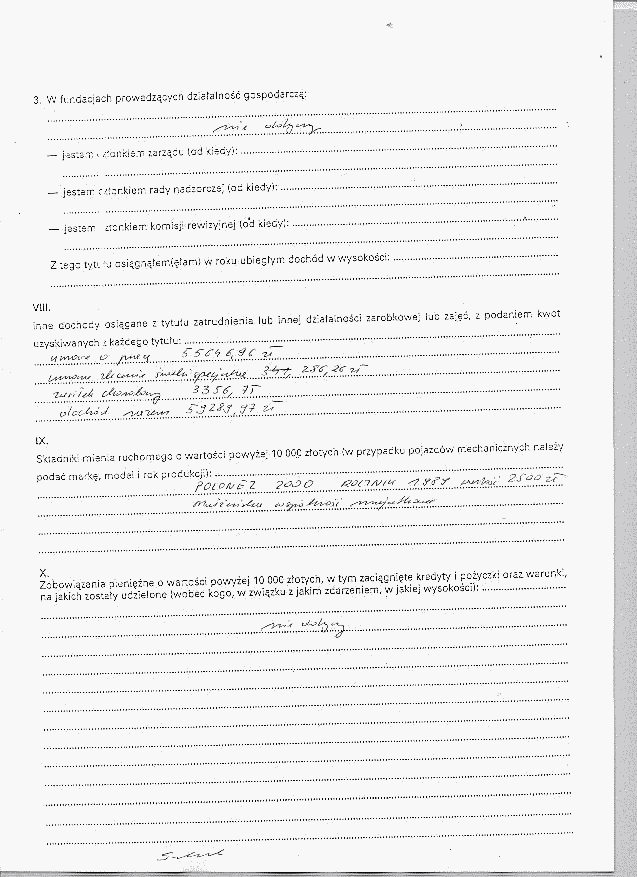 3. W fundacjach prowadzących działalność gospodarczą:
nie dotyczy
— jestem członkiem zarządu (od kiedy):
— jestem członkiem rady nadzorczej (od kiedy):
— jestem członkiem komisji rewizyjnej (od kiedy):
Z tego tytułu osiągnąłem(ęłam) w roku ubiegłym dochód w wysokości:
VIII.
Inne dochody osiągane z tytułu zatrudnienia lub innej działalności zarobkowej lub zajęć, z podaniem kwot
uzyskiwanych z każdego tytułu:
umowa o pracę 55646,96 zł
umowa zlecenie 286,26 zł
zasiłek chorobowy 3356,75
dochód razem 59289,97 zł
IX.
Składniki mienia ruchomego o wartości powyżej 10 000 złotych (w przypadku pojazdów mechanicznych należy
podać markę, model i rok produkcji):
POLONEZ 2000 ROCZNIK 1989 wartość 2500 zł
małżeńska wspólność majątkowa
X.
Zobowiązania pieniężne o wartości powyżej 10 000 złotych, w tym zaciągnięte kredyty i pożyczki oraz warunki,
na jakich zostały udzielone (wobec kogo, w związku z jakim zdarzeniem, w jakiej wysokości):
nie dotyczy